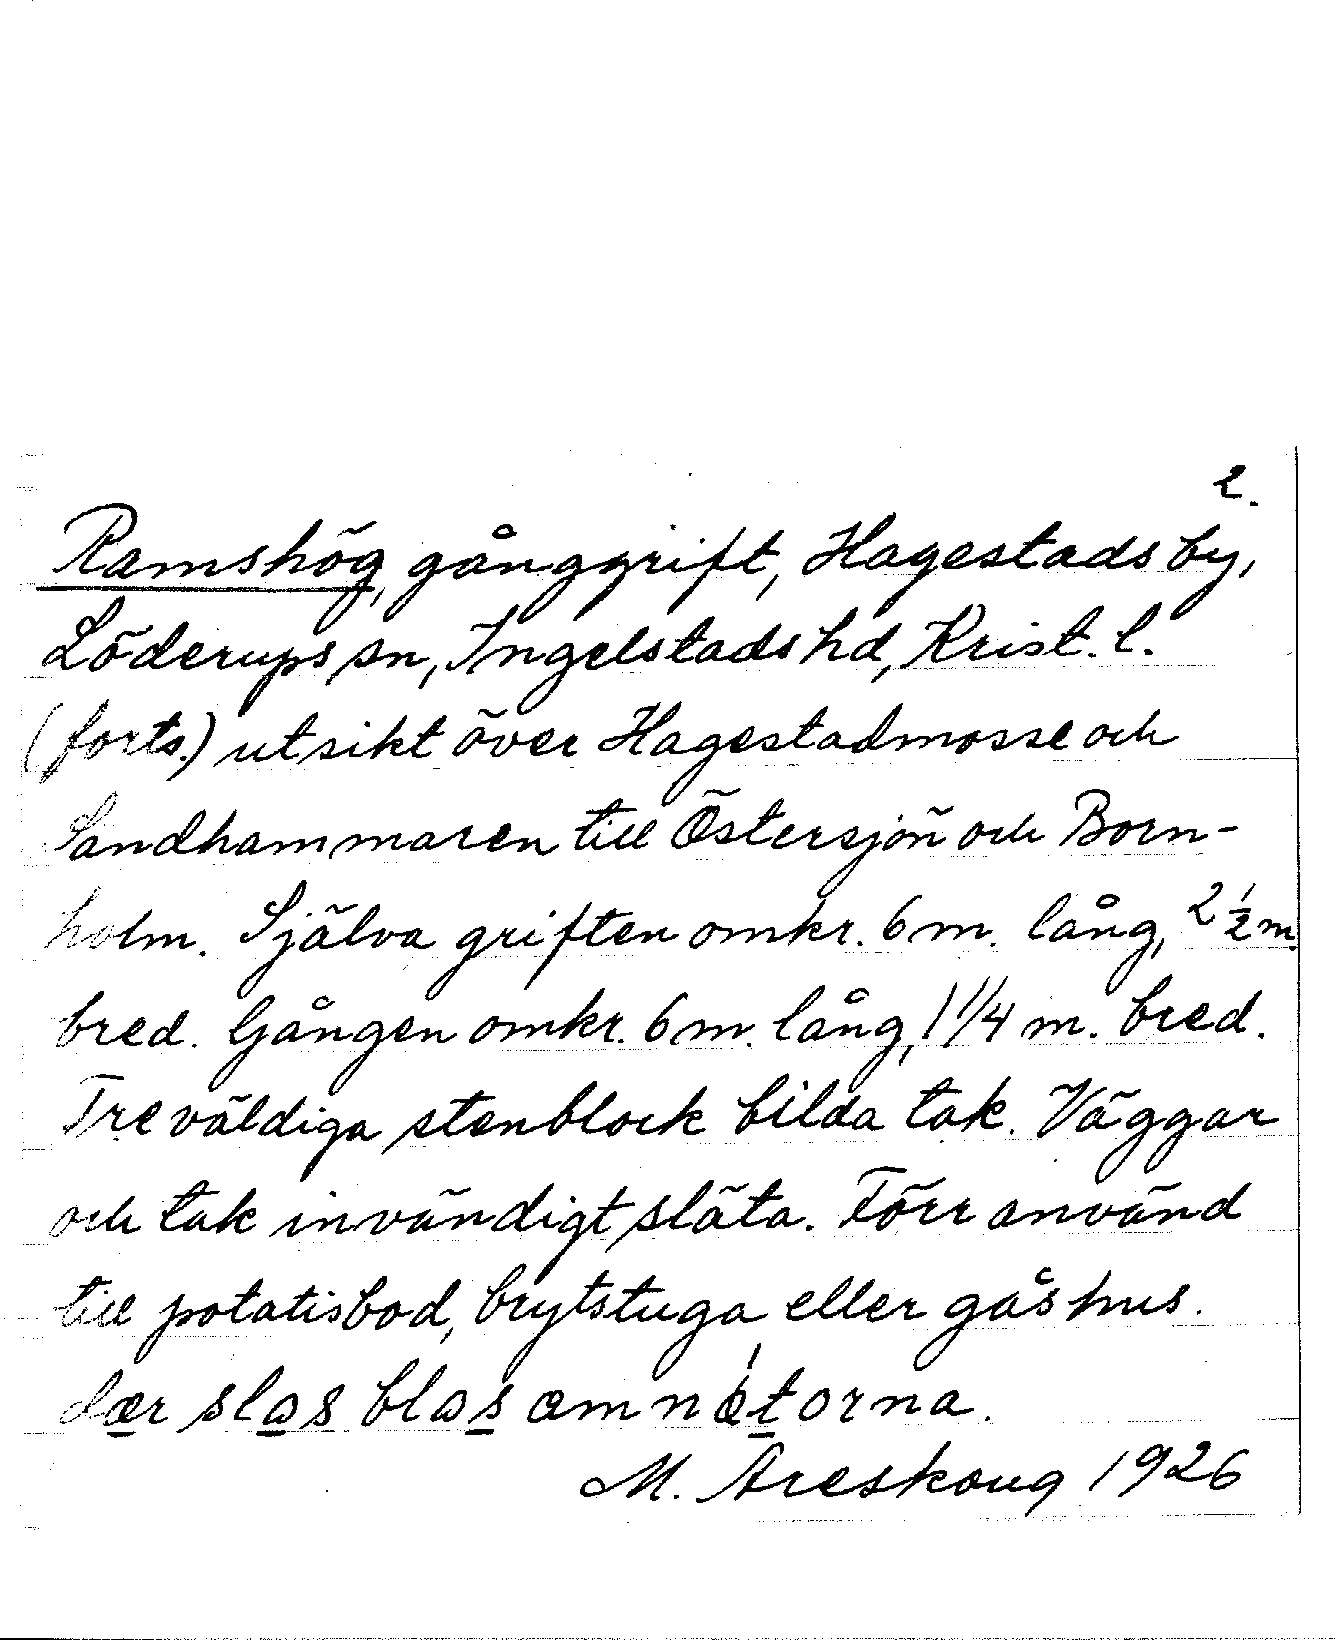 2.
Ramshög, gånggrift, Hagestads by,
Löderups sn, Ingelstads hd, Krist. l.
(forts.) utsikt över Hagestadmosse och
Sandhammaren till Östersjön och Born-
holm. Själva griften omkr. 6 m. lång, 2 1/2 m.
bred. Gången omkr. 6 m. lång, 1 1/4 m. bred.
Tre väldiga stenblock bilda tak. Väggar
och tak invändigt släta. Förr använd
till potatisbod, brytstuga eller gåshus.
dær slas blas æmn torna.
M. Areskoug 1926